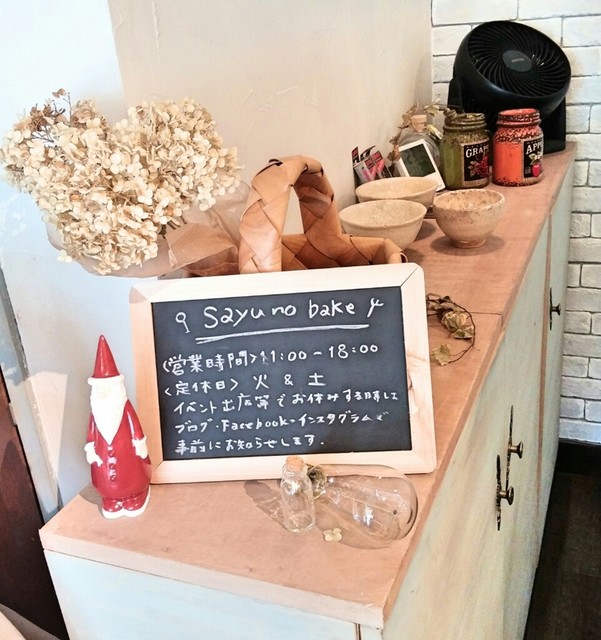 Sayuno bake
〈営業時間〉11:00-18:00
〈定休日〉 火 & 土
イベント出店等でお休みする時して
ブログ・Facebook・インスタグラムで
事前にお知らせします.
GRAPE
APP